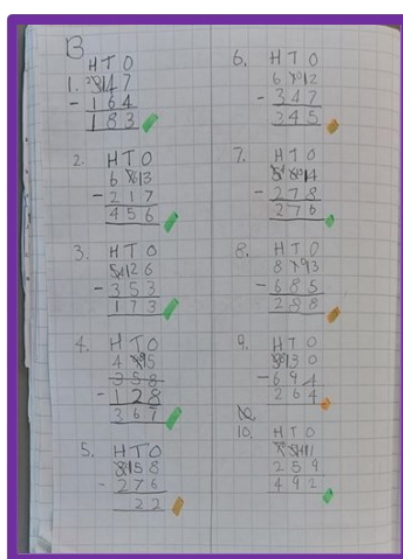 B
H T O
1. 347
- 164
183
2. H T O
6 13
- 217
456
3. H T O
5126
- 353
173
4. H T O
4 15
358
- 128
367
5. H T O
3158
- 276
22
6. H T O
6 12
- 347
345
7. H T O
14
- 278
276
8. H T O
8 93
- 685
288
9. H T O
130
- 694
264
10. H T O
11
259
492